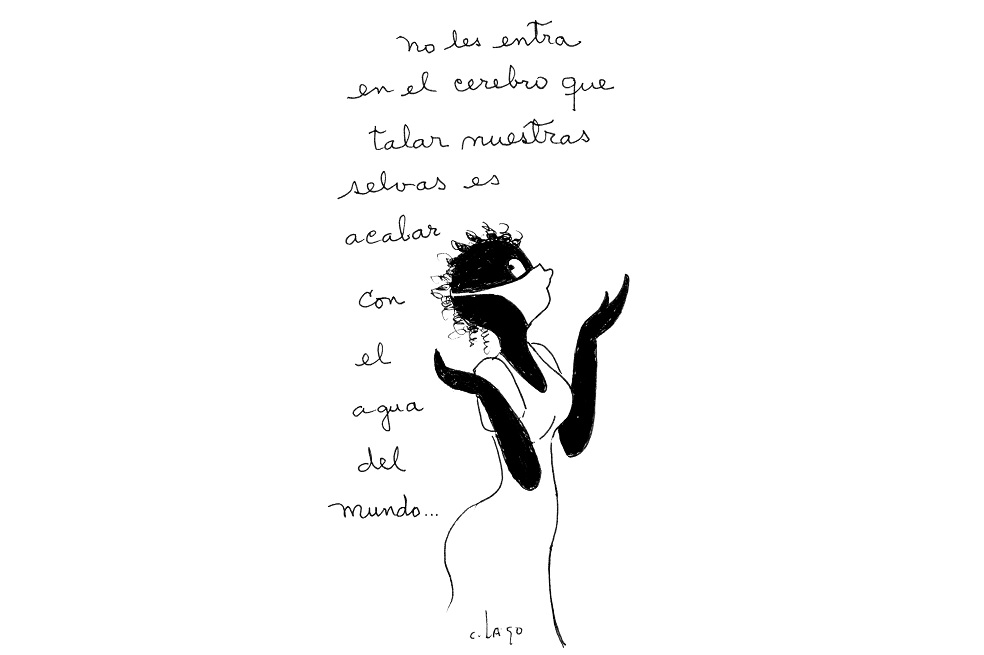 no les entra
en el cerebro que
talar nuestras
selvas es
acabar
con
el
agua
del
mundo...
c. Lago